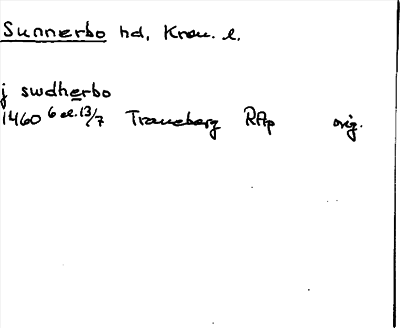 Sunnerbo hd, Kron. l.
j swdherbo
1460 6 el. 13/7 Traneberg RAp orig.